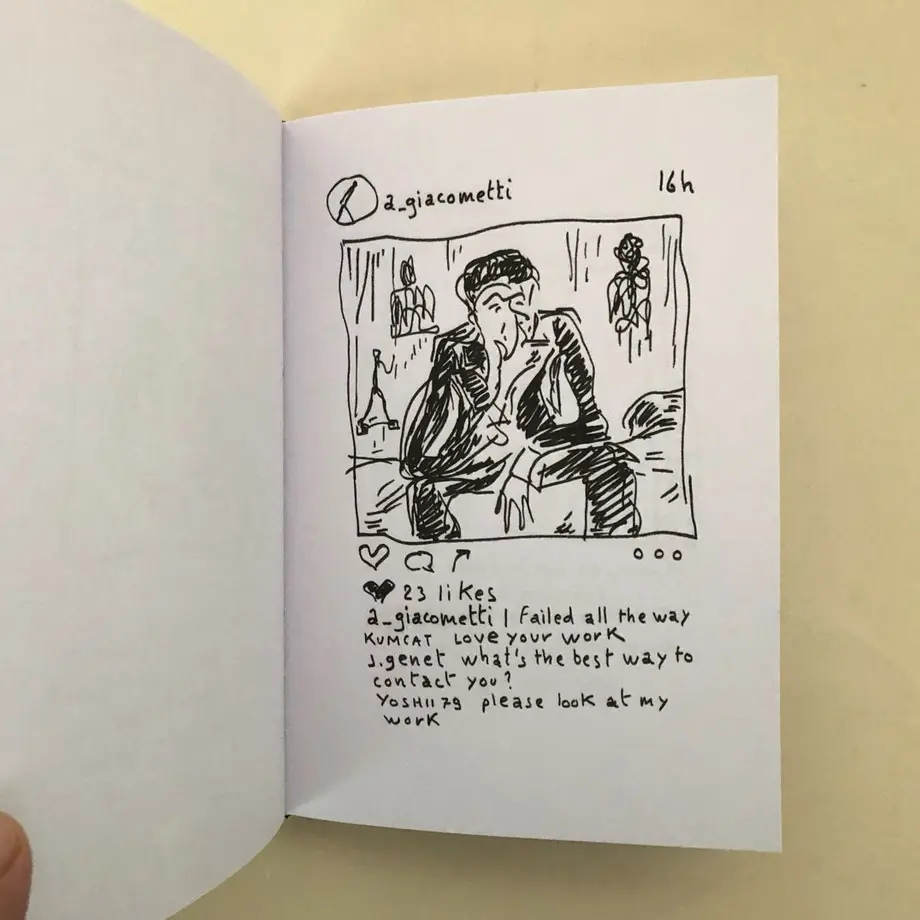 a_giacometti
16h
23 likes
a_giacometti I failed all the way
KUMCAT Love your work
J.genet what's the best way to
contact you?
YOSHII79 please look at my
work